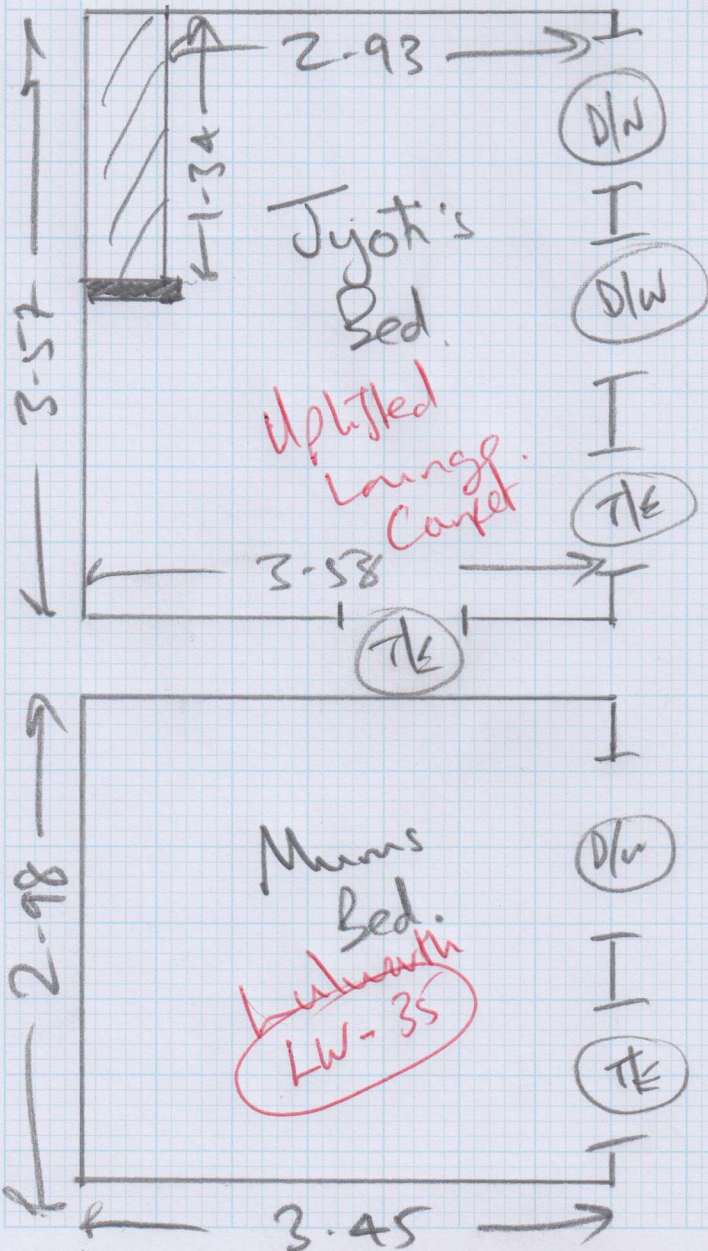 2-93
D/N
1-34
Jyoti's
Bed.
D/W
3-57
Uplifted
Lounge.
Carpet
T/E
3-58
T/E
Mums
Bed.
D/W
2-98
Lulworth
LW-35
T/E
3.45